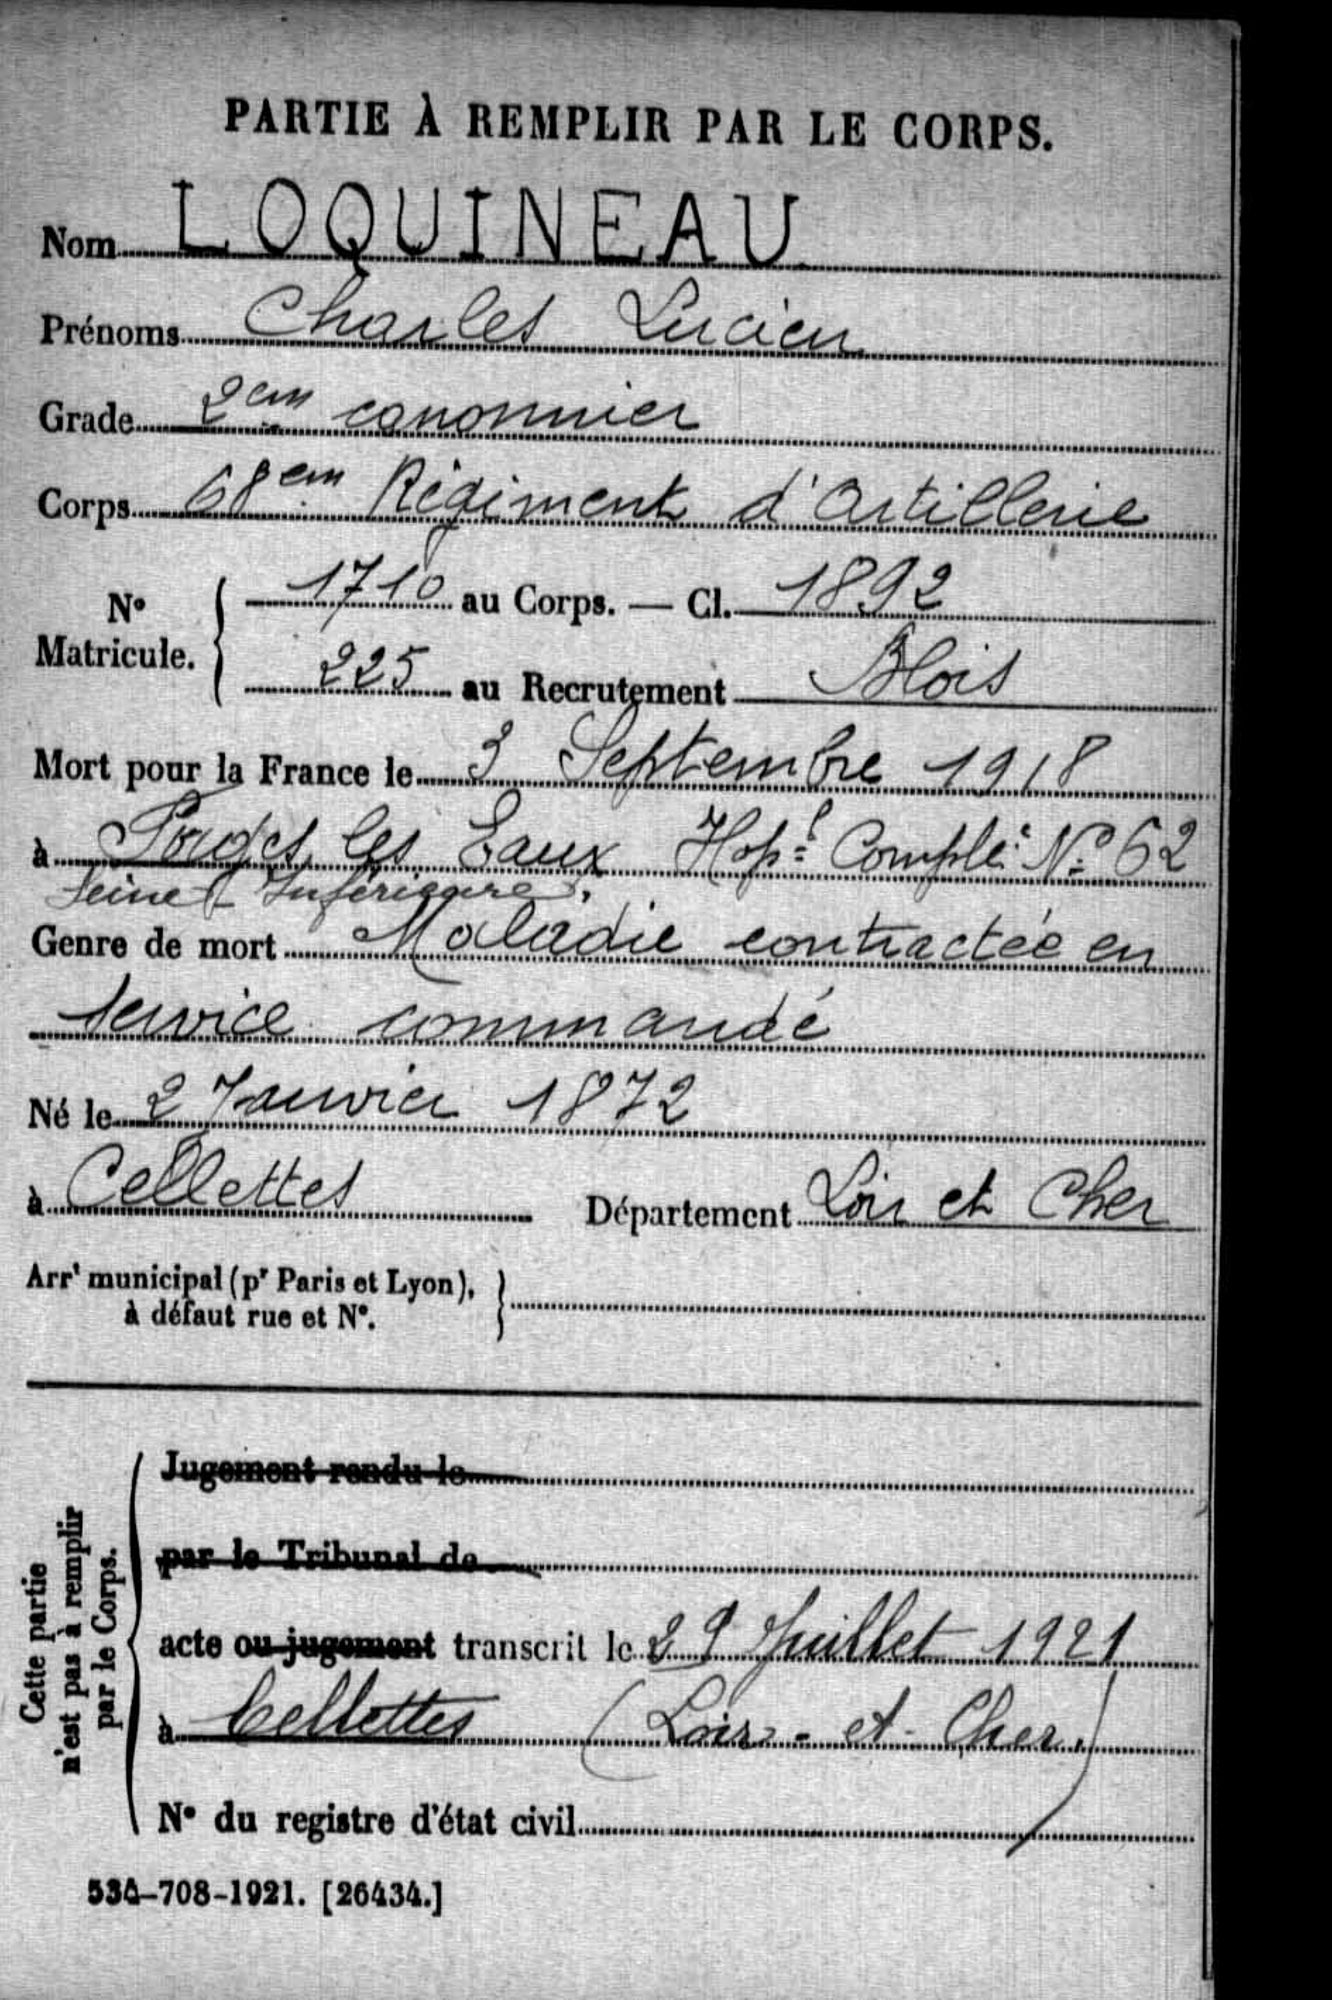 PARTIE À REMPLIR PAR LE CORPS.
Nom LOQUINEAU
Prénoms Charles Lucien
Grade 2em canonnier
Corps 68em Régiment d'Artillerie
N° Matricule. { 1710 au Corps. — Cl. 1892
225 au Recrutement Blois
Mort pour la France le 3 Septembre 1918
à Forges les Eaux Hopl Complé. N° 62
Seine Inférieure.
Genre de mort Maladie contractée en
service commandé
Né le 2 Janvier 1872
à Cellettes Département Loir et Cher
Arrt municipal (pr Paris et Lyon), }
à défaut rue et N°.
Cette partie
n'est pas à remplir
par le Corps.
Jugement rendu le
par le Tribunal de
acte ou jugement transcrit le 29 Juillet 1921
à Cellettes (Loir-et-Cher.)
N° du registre d'état civil
534-708-1921. [26434.]